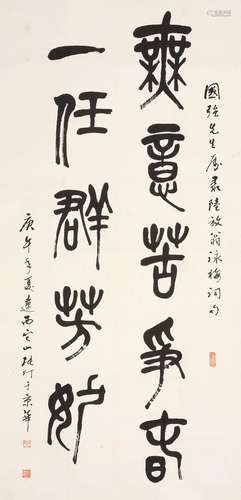 國強先生属录陸放翁詠梅詞句
無意苦爭春
一任群芳妒
庚午年夏遼西它山張仃于京華